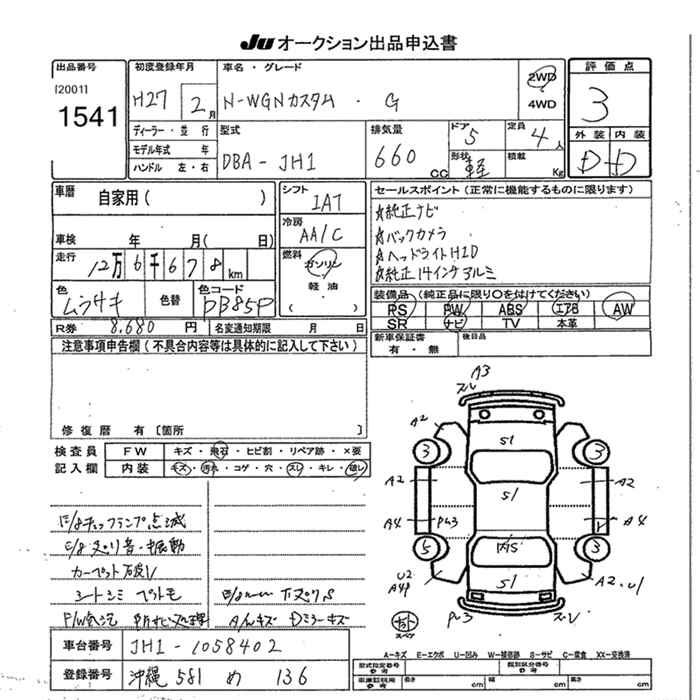 JU オークション出品申込書
出品番号 初度登録年月 車名・グレード 評価点
[2001] H27 2月 N-WGNカスタム・G 2WD 3
1541 4WD
ディーラー・並行 型式 排気量 ドア 定員 外装 内装
モデル年式 年 DBA-JH1 660cc 5 4人 D D
ハンドル 左・右 形状 軽 積載 Kg
車歴 自家用( ) シフト IAT セールスポイント(正常に機能するものに限ります)
冷房 ☆純正ナビ
車検 年 月( 日) AA/C ☆バックカメラ
走行 12万6千678km 燃料 ガソリン ☆ヘッドライトHID
軽油・ ☆純正14インチアルミ
色 ムラサキ 色替 色コード PB85P ( ) 装備品(純正品に限り○を付けてください)
PS PW ABS エアB AW
R券 8,680円 名変通知期限 月 日 SR ナビ TV 本革
注意事項申告欄(不具合内容等は具体的に記入して下さい) 新車保証書 後日品
有・無
修復歴 有〔箇所
検査員 FW キズ・飛石・ヒビ割・リペア跡・×要
記入欄 内装 キズ・汚れ・コゲ・穴・スレ・キレ・破レ
A3
スレ
A2 A1
3 S1 3
A2 A2
S1
A4 A4
5 3
U2 S1 A2.U1
スペア
チェックランプ点滅
走り音・振動
カーペット破レ
シートシミ
A/Wキズ Dミラーキズ
車台番号 JH1-1058402 A-キズ E-エクボ U-凹み W-補修跡 S-サビ C-腐食 XX-交換済
型式指定番号 参考 類別区分番号 参考
登録番号 沖縄 581 め 136 車車証期用 参考 長さ cm 幅 cm 高さ cm